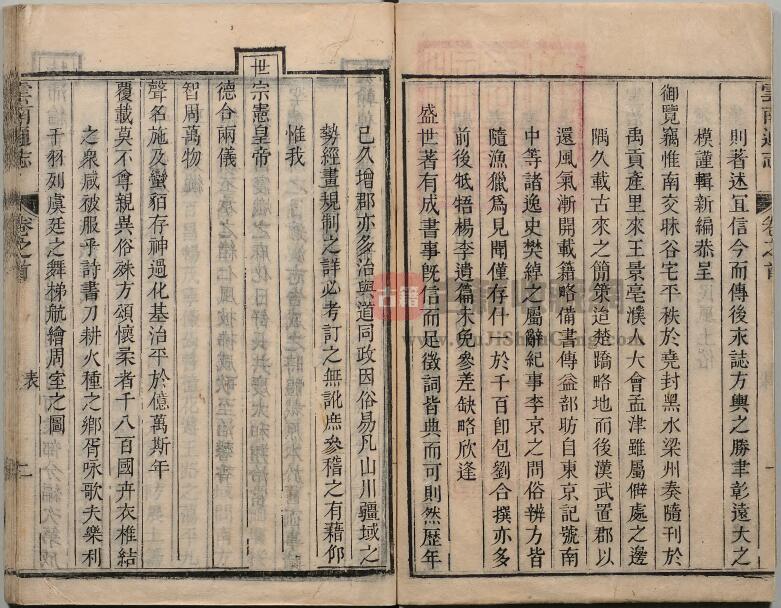 則著述宜信今而傳後求誌方輿之勝聿彰遠大之
模謹輯新編恭呈
御覽竊惟南交昧谷宅平秩於堯封黑水梁州奏隨刊於
禹貢產里來王景亳濮人大會孟津雖屬僻處之邊
隅久載古來之簡策迨楚蹻略地而後漢武置郡以
還風氣漸開載籍略備書傳益部昉自東京記號南
中等諸逸史樊綽之屬辭紀事李京之問俗辨方皆
隨漁獵爲見聞僅存什一於千百卽包劉合撰亦多
前後牴牾楊李遺篇未免參差缺略欣逢
盛世著有成書事旣信而足徵詞皆典而可則然歷年
雲南通志
卷之首
一
已久增郡亦多治與道同政因俗易凡山川疆域之
勢經畫規制之詳必考訂之無訛庶參稽之有藉仰
惟我
世宗憲皇帝
德合兩儀
智周萬物
聲名施及蠻貊存神過化基治平於億萬斯年
覆載莫不尊親異俗殊方頌懷柔者千八百國卉衣椎結
之衆咸被服乎詩書刀耕火種之鄉胥咏歌夫樂利
干羽列虞廷之舞梯航繪周室之圖
雲南通志
卷之首
表
二
古籍
www.GuJiShuCang.com